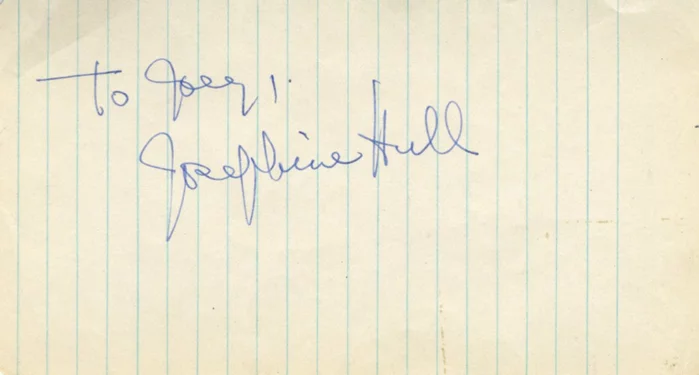 To Joey!
Josephine Hull